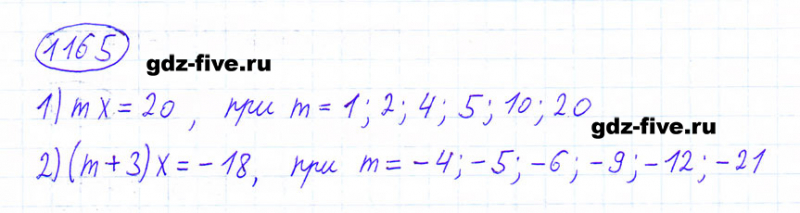 1165
gdz-five.ru
1) m x = 20, при m = 1; 2; 4; 5; 10; 20
gdz-five.ru
2) (m + 3) x = - 18, при m = - 4; - 5; - 6; - 9; - 12; - 21